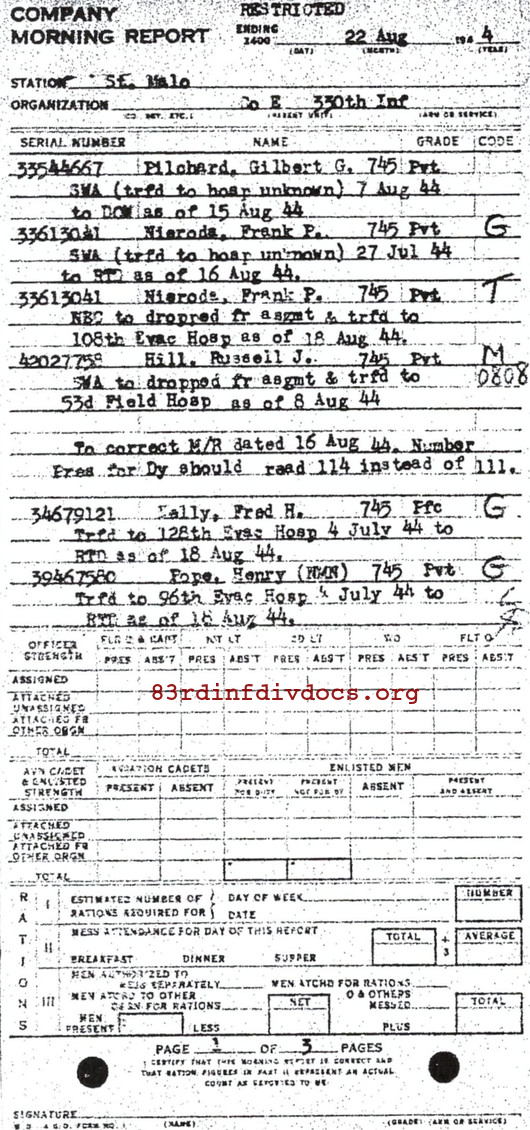 COMPANY
MORNING REPORT
RESTRICTED
ENDING
2400
22 Aug 194 4
(DAY) (MONTH) (YEAR)
STATION St. Malo
ORGANIZATION Co E 330th Inf
(CO, DET, ETC.) (PARENT UNIT) (ARM OR SERVICE)
SERIAL NUMBER NAME GRADE CODE
33544667 Pilchard, Gilbert G. 745 Pvt
SWA (trfd to hosp unknown) 7 Aug 44
to DOW as of 15 Aug 44
33613041 Nieroda, Frank P. 745 Pvt G
SWA (trfd to hosp unknown) 27 Jul 44
to RTD as of 16 Aug 44.
33613041 Nieroda, Frank P. 745 Pvt T
NBC to dropped fr asgmt & trfd to
108th Evac Hosp as of 18 Aug 44.
42027758 Hill, Russell J. 745 Pvt M
SWA to dropped fr asgmt & trfd to 0808
53d Field Hosp as of 8 Aug 44
To correct M/R dated 16 Aug 44. Number
Pres for Dy should read 114 instead of 111.
34679121 Kally, Fred H. 745 Pfc G
Trfd to 128th Evac Hosp 4 July 44 to
RTD as of 18 Aug 44.
39467580 Pope, Henry (NMN) 745 Pvt G
Trfd to 96th Evac Hosp 4 July 44 to
RTD as of 18 Aug 44.
OFFICER
STRENGTH
1ST LT 2D LT WO FLT O
PRES ABS'T PRES ABS'T PRES ABS'T PRES ABS'T PRES ABS'T
ASSIGNED
ATTACHED
UNASSIGNED
ATTACHED FR
OTHER ORGN
TOTAL
83rdinfdivdocs.org
AVN CADET
& ENLISTED
STRENGTH
AVIATION CADETS ENLISTED MEN
PRESENT ABSENT PRESENT FOR DUTY PRESENT NOT FOR DY ABSENT PRESENT AND ABSENT
ASSIGNED
ATTACHED
UNASSIGNED
ATTACHED FR
OTHER ORGN
TOTAL
RATIONS
I ESTIMATED NUMBER OF DAY OF WEEK NUMBER
RATIONS REQUIRED FOR DATE
II MESS ATTENDANCE FOR DAY OF THIS REPORT TOTAL ÷ 3 AVERAGE
BREAKFAST DINNER SUPPER
III MEN AUTHORIZED TO
MESS SEPARATELY MEN ATCHD FOR RATIONS
MEN ATCHD TO OTHER
ORGN FOR RATIONS NET O & OTHERS
MESSED TOTAL
MEN
PRESENT LESS PLUS
PAGE 1 OF 3 PAGES
I CERTIFY THAT THIS MORNING REPORT IS CORRECT AND
THAT RATION FIGURES IN PART II REPRESENT AN ACTUAL
COUNT AS REPORTED TO ME
SIGNATURE
W.D. A.G.O. FORM NO. 1 (NAME) (GRADE) (ARM OR SERVICE)